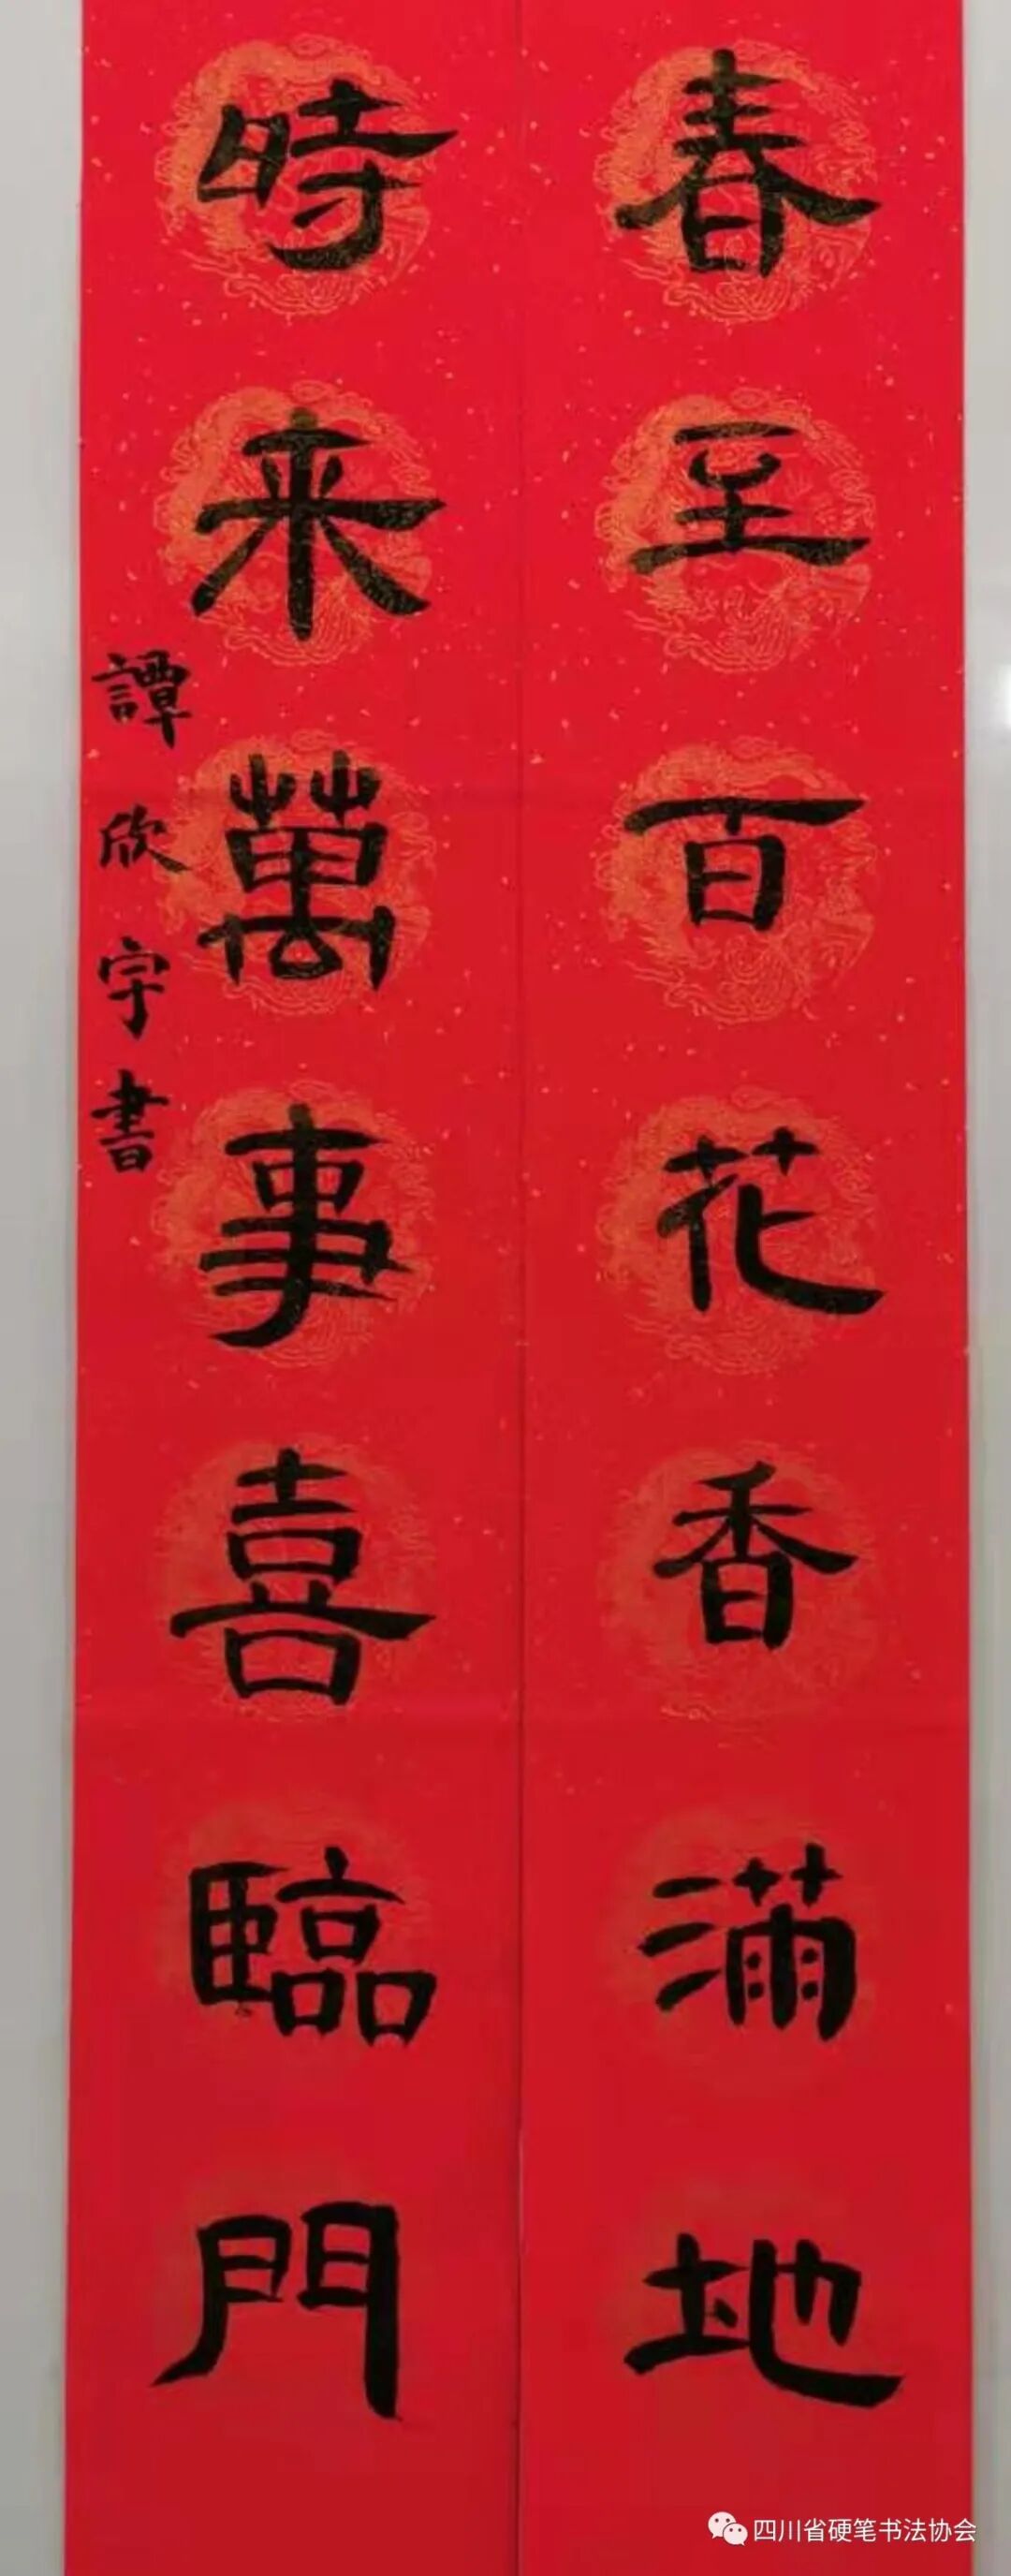 春至百花香滿地
時来萬事喜臨門
譚欣宇書
四川省硬笔书法协会